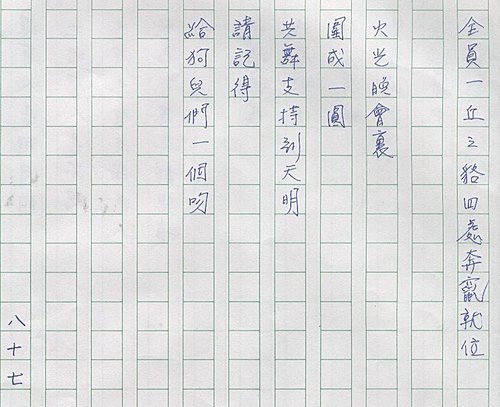 全員一丘之貉四處奔竄就位
火光晚會裏
圍成一圓
共舞支持到天明
請記得
給狗兒們一個吻
八十七